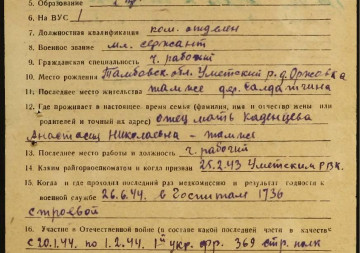 5. Образование
6. На ВУС 1
7. Должностная квалификация ком. отделен
8. Военное звание мл. сержант
9. Гражданская специальность ч. рабочий
10. Место рождения Тамбовск. обл. Уметский р. д. Оржовка
11. Последнее место жительства там же дер.
12. Где проживает в настоящее время семья (фамилия, имя и отчество жены или
родителей и точный их адрес) отец мать Каденцева
Анастасия Николаевна - там же
13. Последнее место работы и должность ч. рабочий
14. Каким райгорвоенкоматом и когда призван 25.2.43 Уметским РВК
15. Когда и где проходил последний раз медкомиссию и результат годности к
военной службе 26.6.44. в Госпитале 1736
строевой
16. Участие в Отечественной войне (в составе какой последней части и в качестве
с 20.1.44. по 1.2.44. 1й укр. фр. 369 стр. полк